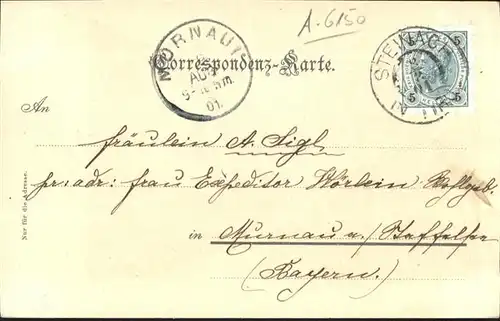 A.6150
MURNAU
AUG
01.
Correspondenz-Karte.
STEINACH
IN TIROL
5 5
An
fräulein A. Sigl
pr: adr: frau Expeditor Wörlein
in Murnau a/Staffelsee
(Bayern.)
Nur für die Adresse.